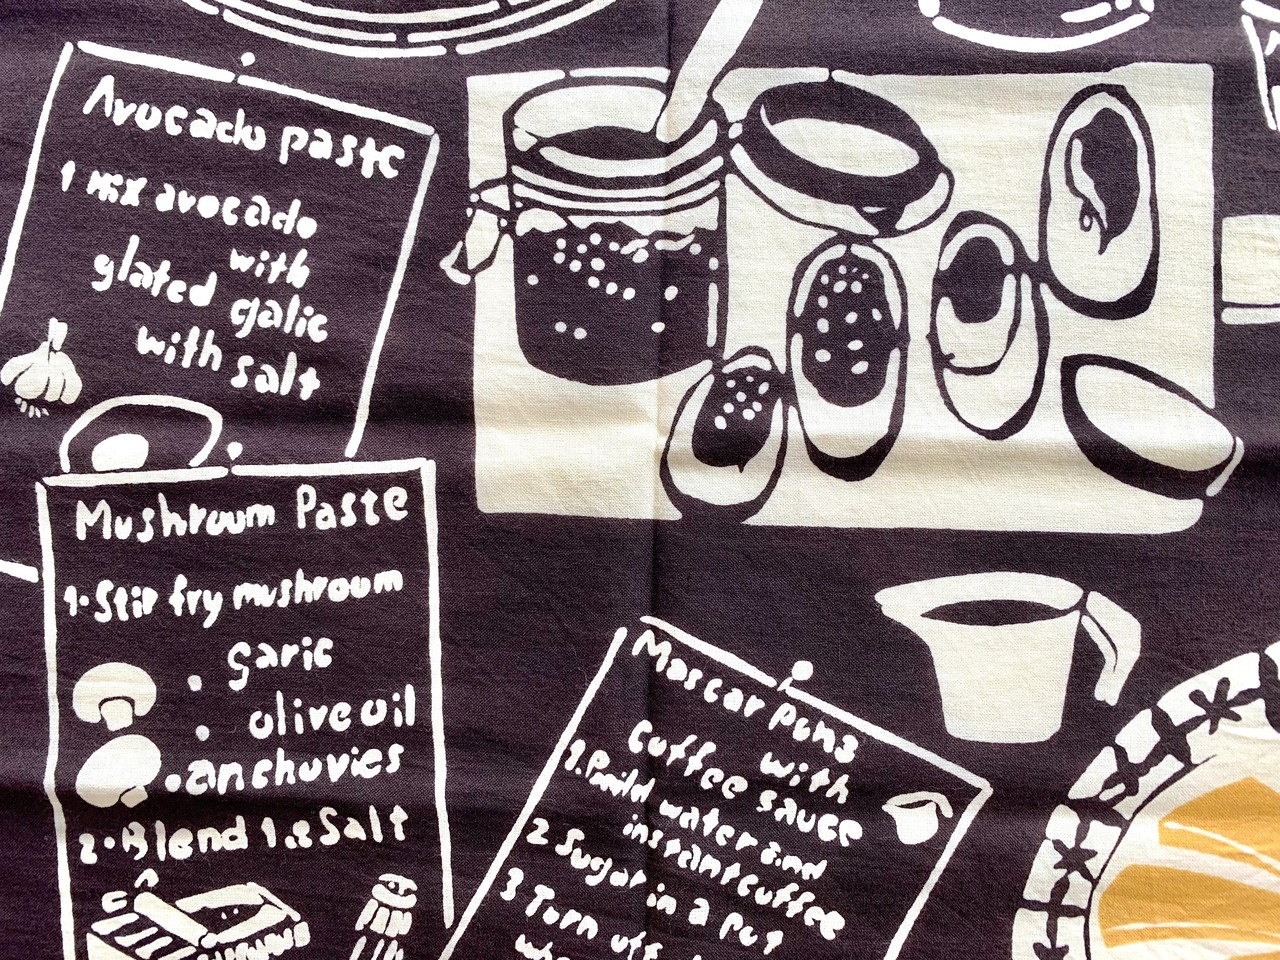 Avocado paste
1 mix avocado
with
glated galic
with salt
Mushroom Paste
1. Stir fry mushroom
garic
. olive oil
. anchovies
2. Blend 1. & Salt
Mascar pone
with
Coffee sauce
1. water and
instant coffee
2 Sugar in a pot
3 Turn off